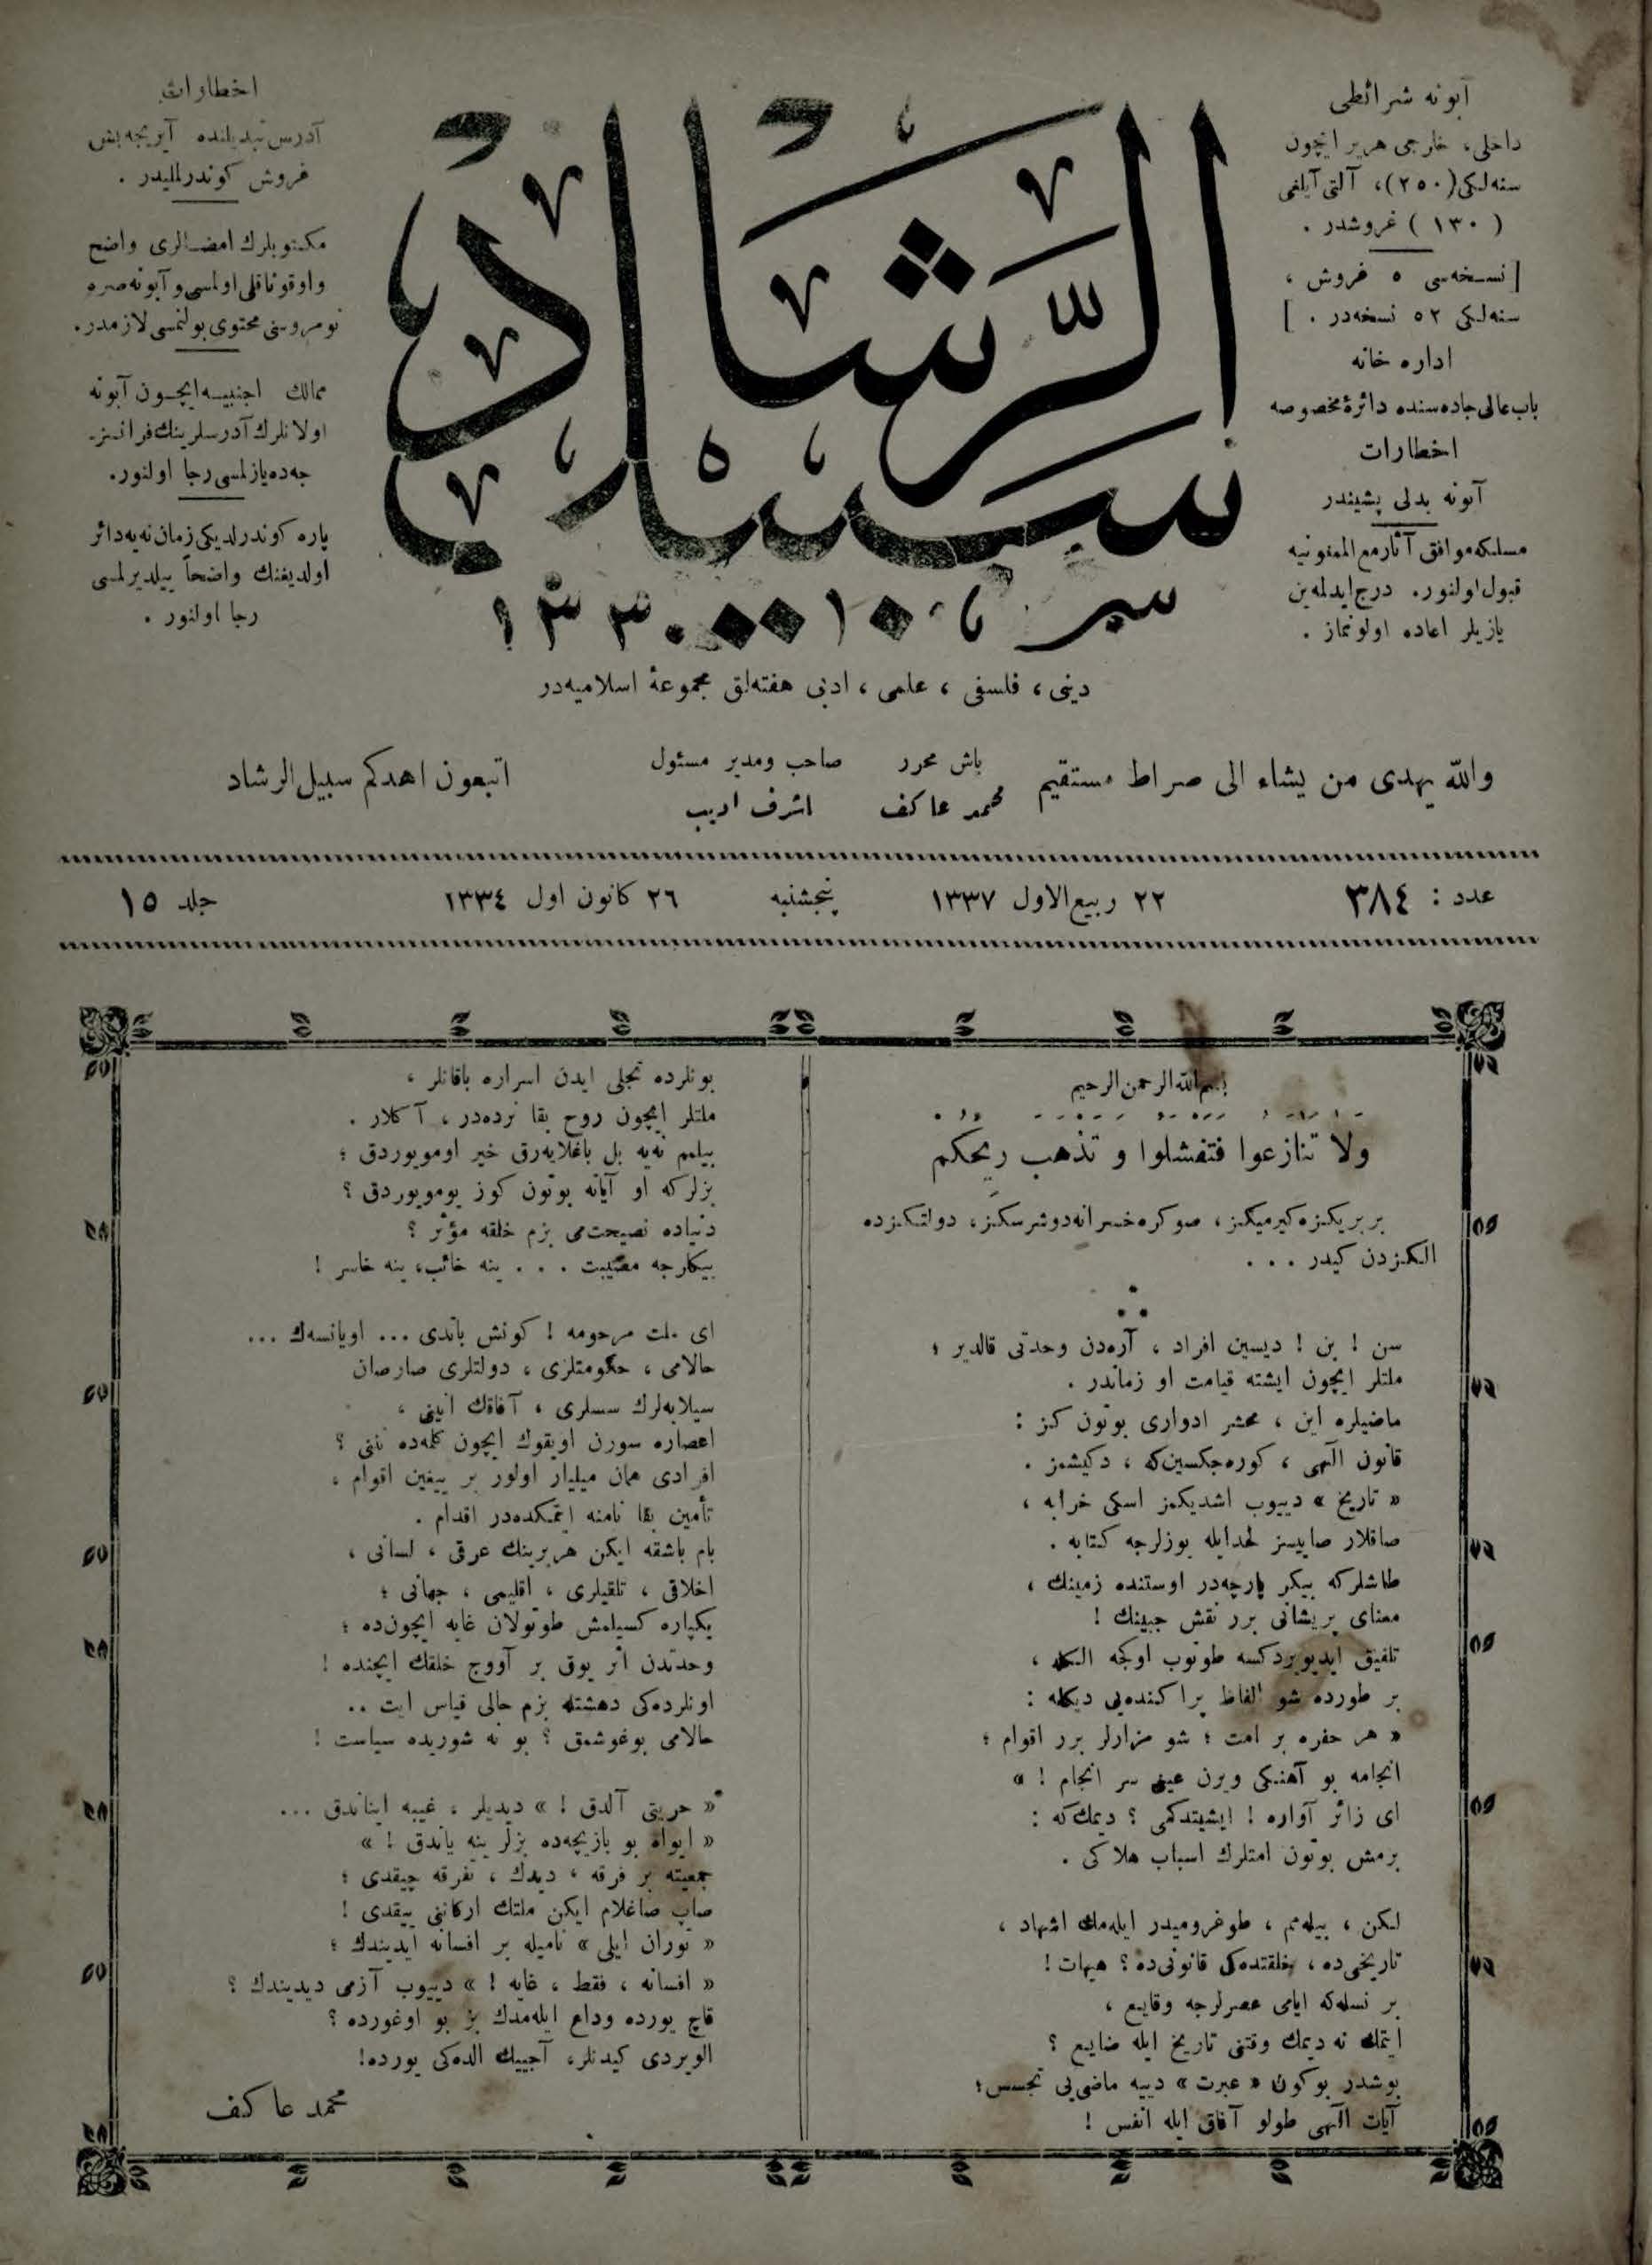 آبونه شرائطی
داخلی، خارجی هر یر ایچون
سنه‌لکی (۲۵۰)، آلتی آیلغی
( ۱۳۰ ) غروشدر .
[ نسخه‌سی ۵ غروش ،
سنه‌لکی ۵۲ نسخه‌در . ]
اداره خانه
باب عالی جاده‌سنده دائرۀ مخصوصه
اخطارات
آبونه بدلی پشیندر
مسلکه موافق آثار مع الممنونیه
قبول اولنور . درج ایدلمه‌ین
یازیلر اعاده اولونماز .
سبیل الرشاد
۱۳۳۰
اخطارات
آدرس تبدیلنده آیریجه بش
غروش کوندرلملیدر .
مکتوبلرك امضالری واضح
و اوقوناقلی اولمسی و آبونه صره
نومروسنی محتوی بولنمسی لازمدر .
ممالك اجنبیه ایچون آبونه
اولانلرك آدرسلرینك فرانسز-
جه‌ده یازلمسی رجا اولنور .
پاره کوندرلدیکی زمان نه‌یه دائر
اولدیغنك واضحاً بیلدیرلمسی
رجا اولنور .
دینی ، فلسفی ، علمی ، ادبی هفته‌لق مجموعۀ اسلامیه‌در
والله یهدی من یشاء الی صراط مستقیم
باش محرر
محمد عاکف
صاحب و مدیر مسئول
اشرف ادیب
اتبعون اهدکم سبیل الرشاد
عدد : ۳۸٤ ۲۲ ربیع الاول ۱۳۳۷ پنجشنبه ۲٦ کانون اول ۱۳۳٤ جلد ۱۵
بسم الله الرحمن الرحیم
ولا تنازعوا فتفشلوا و تذهب ریحکم
بر بریکزه کیرمیکز ، صوکره خسرانه دوشرسکز ، دولتکزده
الکزدن کیدر . . .
سن ! بن ! دیسین افراد ، آره‌دن وحدتی قالدیر ؛
ملتلر ایچون ایشته قیامت او زماندر .
ماضیلره این ، محشر ادواری بوتون کز :
قانون الهی ، کوره‌جکسین که ، دکیشمز .
« تاریخ » دییوب اشدیکمز اسکی خرابه ،
صاقلار صاییسز لحدایله یوزلرجه کتابه .
طاشلرکه بیکر پارچه‌در اوستنده زمینك ،
معنای پریشانی برر نقش جبینك !
تلفیق ایدیویردکسه طوتوب اوکجه الکله ،
بر طورده شو الفاظ پراکنده‌یی دیکله :
« هر حفره بر امت ؛ شو مزارلر برر اقوام ؛
انجامه بو آهنکی ویرن عین سر انجام ! »
ای زائر آواره ! ایشیتدکمی ؟ دیمك که :
برمش بوتون امتلرك اسباب هلاکی .
لکن ، بیله‌مم ، طوغرومیدر ایله‌مك اشهاد ،
تاریخی‌ده ، خلقتده‌کی قانونی‌ده ؟ هیهات !
بر نسله که ایامی عصرلرجه وقایع ،
ایتمك نه دیمك وقتنی تاریخ ایله ضایع ؟
بوشدر بوکون « عبرت » دییه ماضی‌یی تجسس ؛
آیات الهی طولو آفاق ایله انفس !
بونلرده تجلی ایدن اسراره باقانلر ،
ملتلر ایچون روح بقا نرده‌در ، آکلار .
بیلمم نه‌یه بل باغلایه‌رق خیر اومویوردق ؛
بزلرکه او آیاته بوتون کوز یومویوردق ؟
دنیاده نصیحت‌می بزم خلقه مؤثر ؟
بیکلرجه مصیبت . . . ینه خائب، ینه خاسر !
ای ملت مرحومه ! کونش باتدی ... اویانسه‌ك ...
حالامی ، حکومتلری ، دولتلری صارصان
سیلابه‌لرك سسلری ، آفاقك انینی ،
اعصاره سورن اویقوك ایچون کلمه‌ده ننی ؟
افرادی همان میلیار اولور بر ییغین اقوام ،
تأمین بقا نامنه ایتمکده‌در اقدام .
بام باشقه ایکن هربرینك عرقی ، لسانی ،
اخلاقی ، تلقیلری ، اقلیمی ، جهانی ؛
یکپاره کسیلمش طوتولان غایه ایچون‌ده ؛
وحدتدن اثر یوق بر آووج خلقك ایچنده !
اونلرده‌کی دهشتله بزم حالی قیاس ایت ..
حالامی بوغوشمق ؟ بو نه شوریده سیاست !
« حریتی آلدق ! » دیدیلر ، غیبه ایناندق ...
« ایواه بو بازیچه‌ده بزلر ینه یاندق ! »
جمعیته بر فرقه ، دیدك ، تفرقه چیقدی ؛
صاپ صاغلام ایکن ملتك ارکاننی ییقدی !
« توران ایلی » نامیله بر افسانه ایدیندك ؛
« افسانه ، فقط ، غایه ! » دییوب آزمی دیدیندك ؟
قاچ یورده وداع ایله‌مدك بز بو اوغورده ؟
الویردی کیدنلر، آجییك الده‌کی یورده!
محمد عاکف